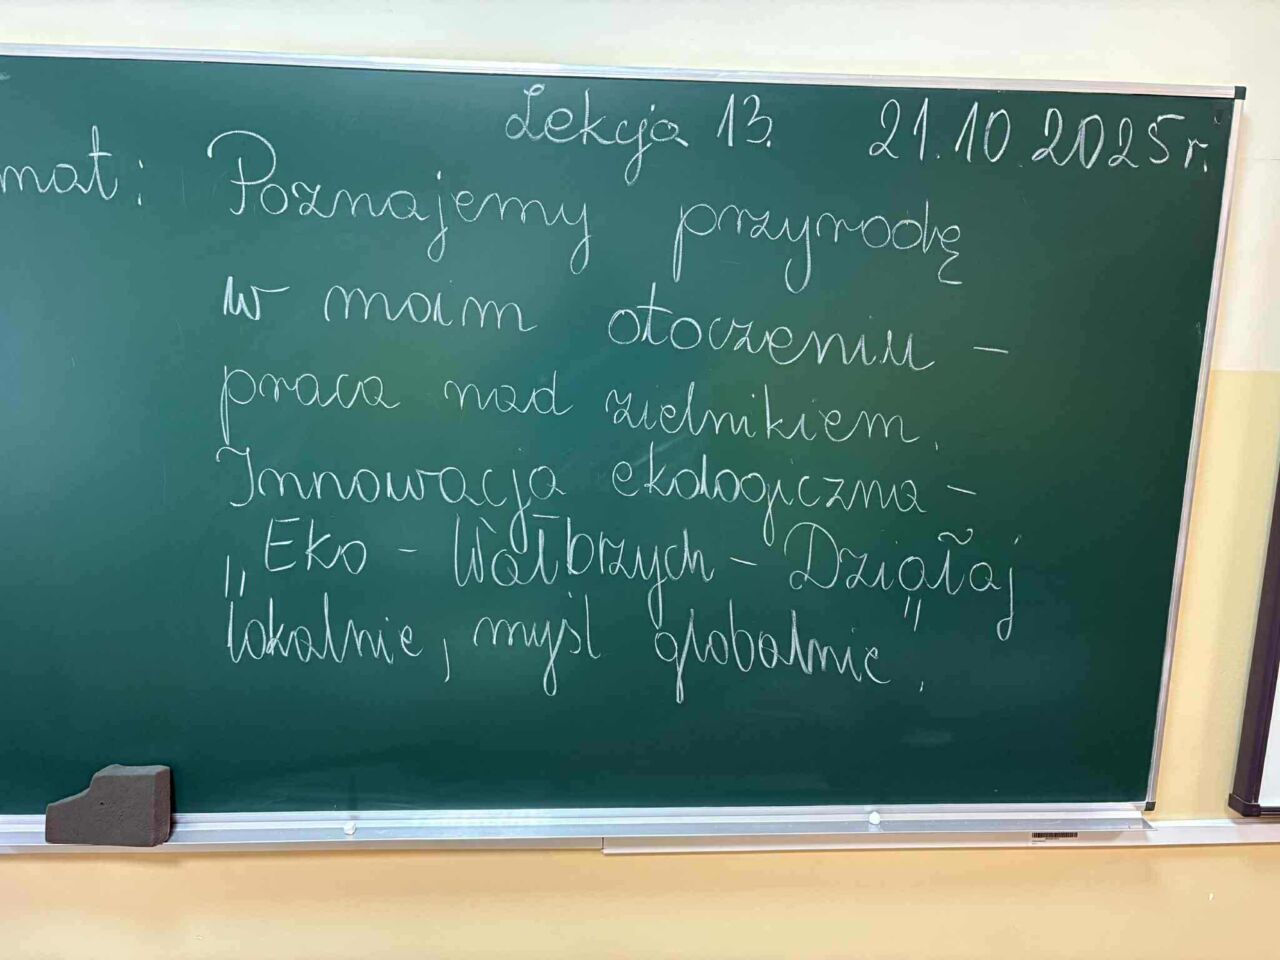 Lekcja 13. 21.10.2025 r.
mat: Poznajemy przyrodę
w moim otoczeniu –
praca nad zielnikiem.
Innowacja ekologiczna –
„Eko – Wałbrzych – Działaj
lokalnie, myśl globalnie".